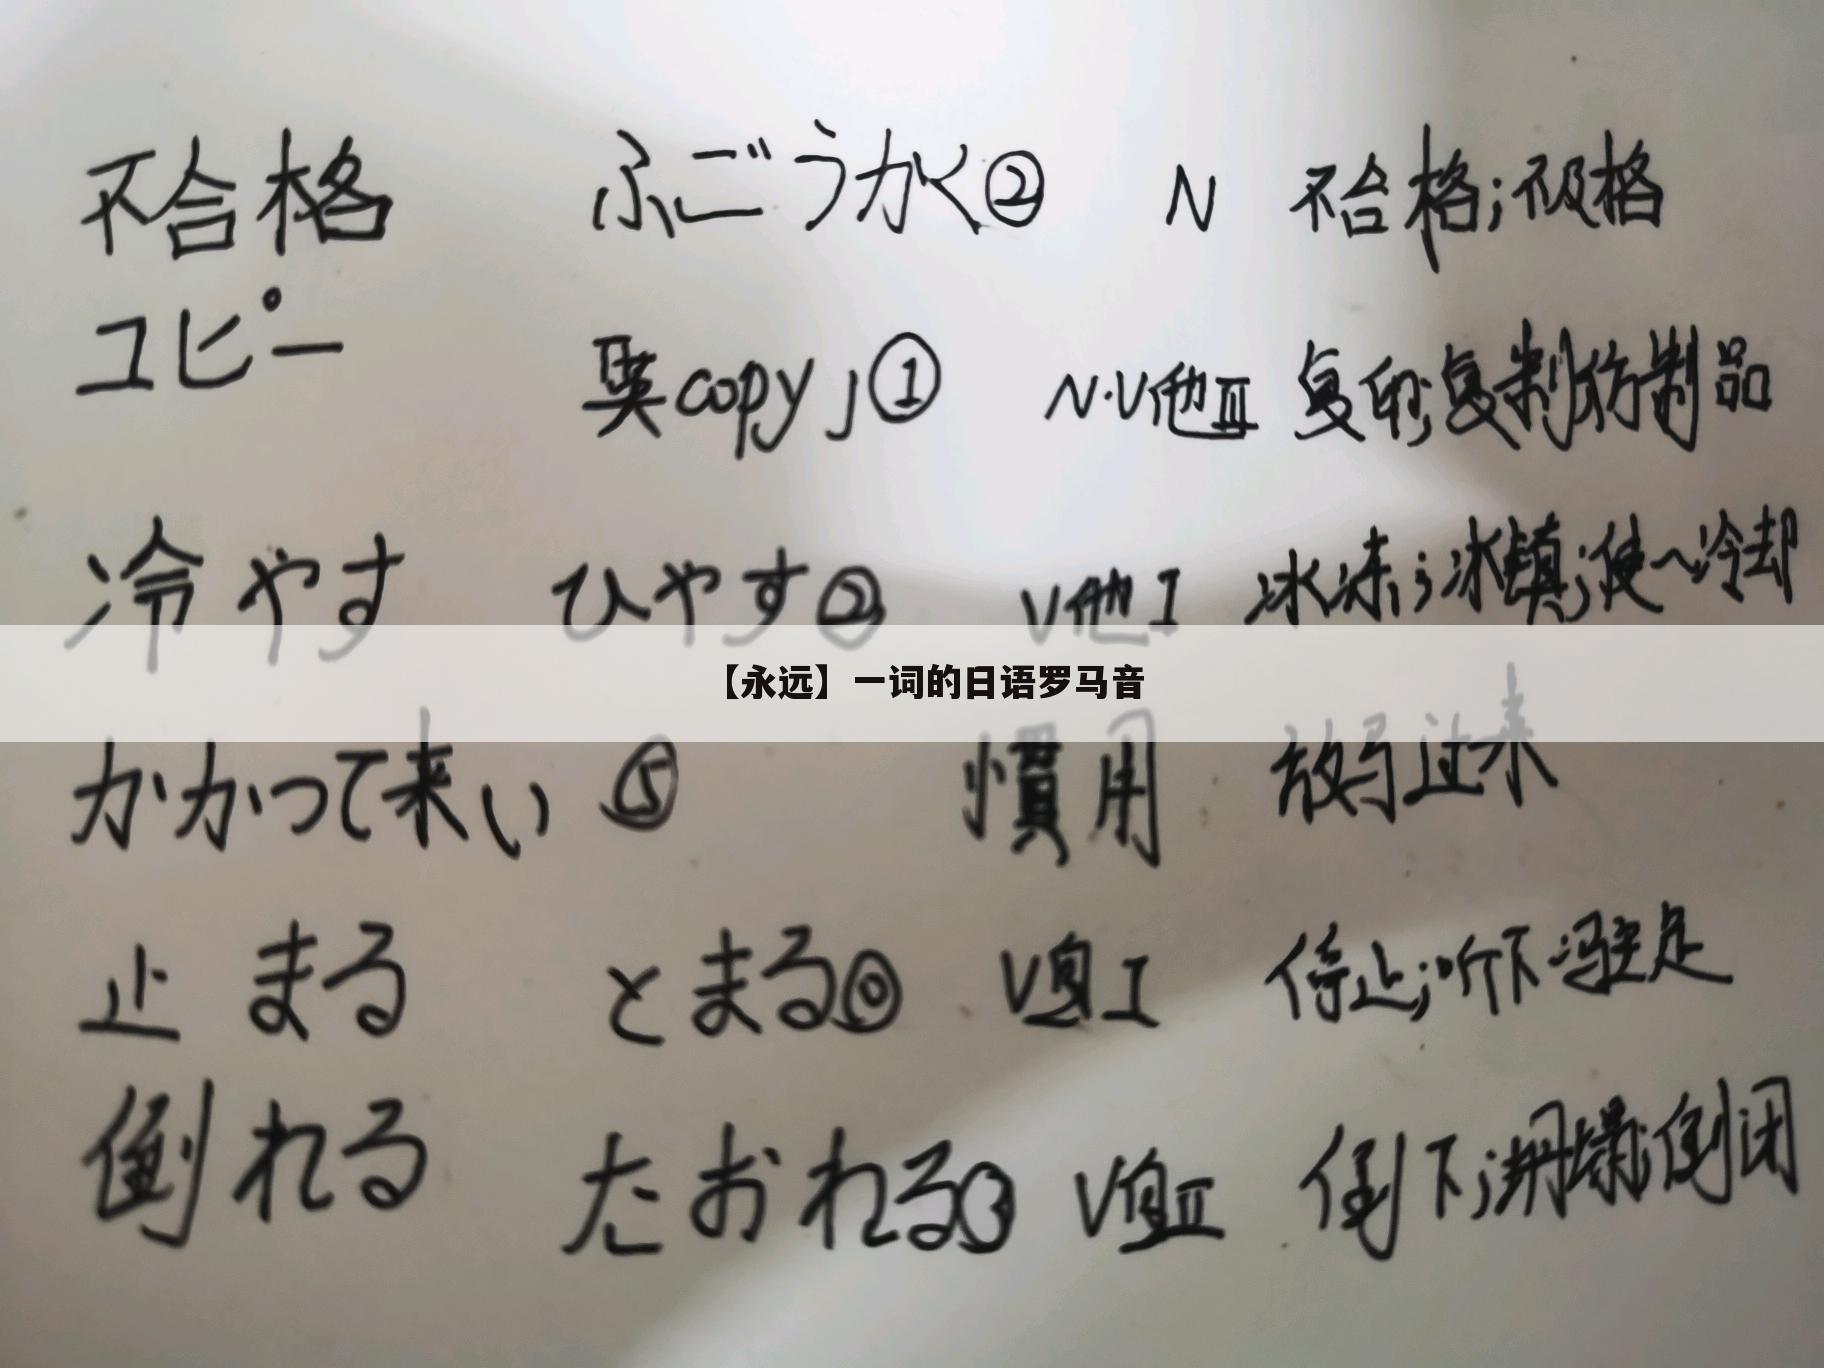 不合格 ふごうかく② N 不合格;不及格
コピー 英copy」① N·V他Ⅲ 复印;复制仿制品
冷やす ひやす② V他Ⅰ 冰冻;冰镇;使~冷却
【永远】一词的日语罗马音
かかって来い ⑤ 慣用 放马过来
止まる とまる⓪ V自Ⅰ 停止;听下;驻足
倒れる たおれる③ V自Ⅱ 倒下;倒闭